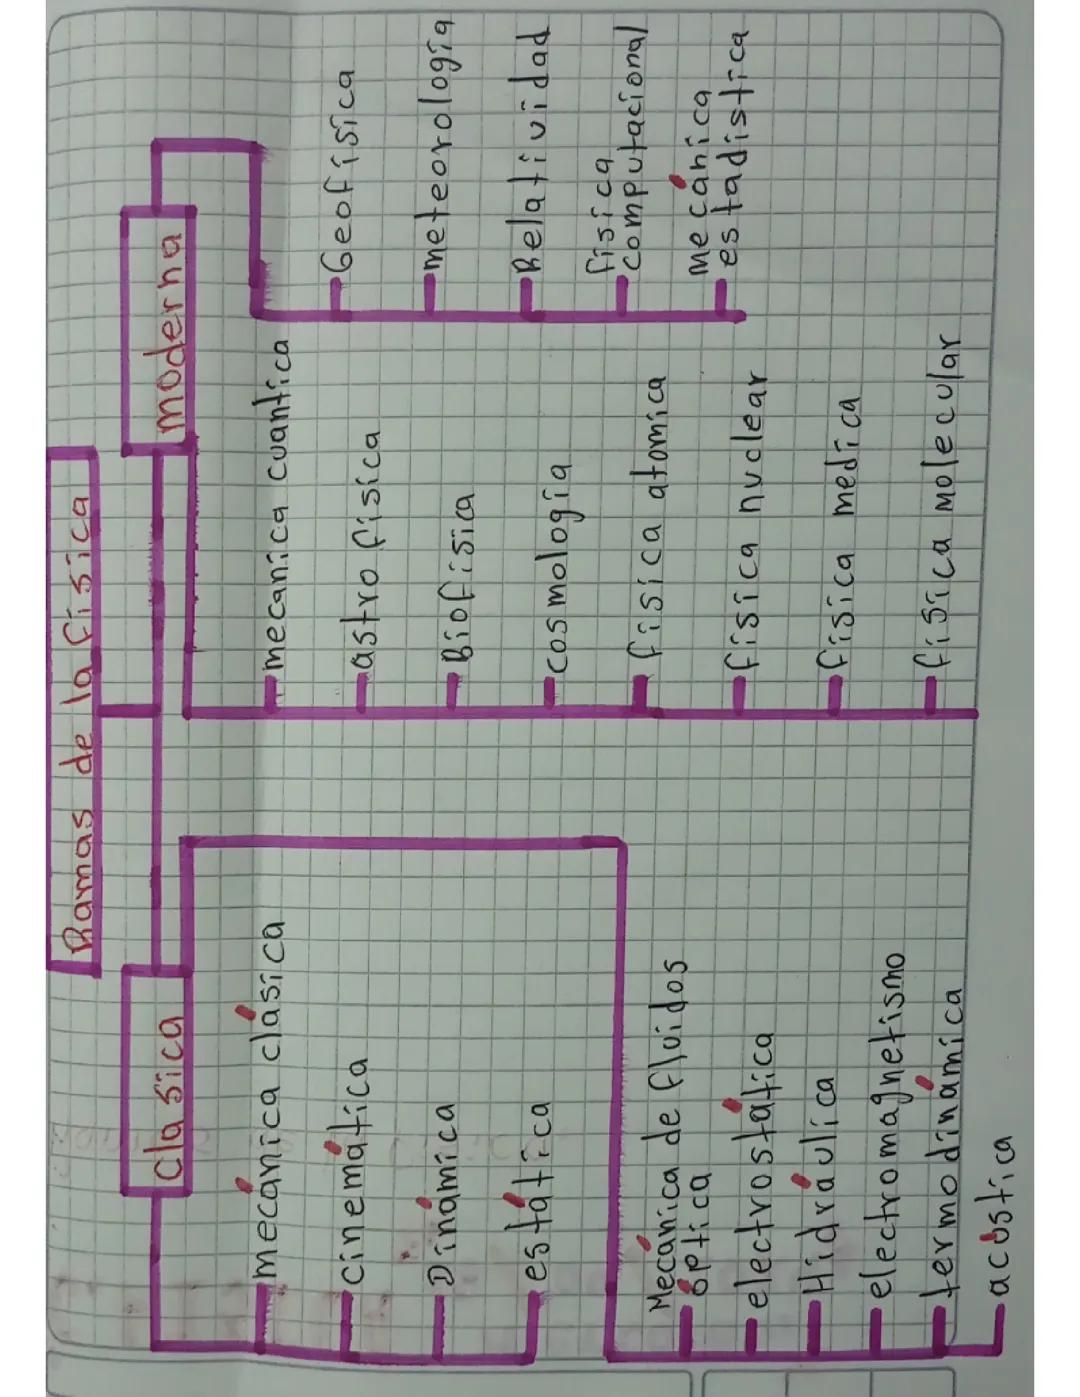 Ramas de la física
Clasica
mecánica clásica
cinemática
Dinámica
estática
Mecánica de fluidos
óptica
electrostática
Hidráulica
electromagnetismo
termodinámica
acústica
moderna
mecanica cuantica
astrofísica
Biofísica
cosmología
física atomica
física nuclear
física medica
física molecular
Geofísica
meteorología
Relatividad
física
computacional
mecánica
estadística